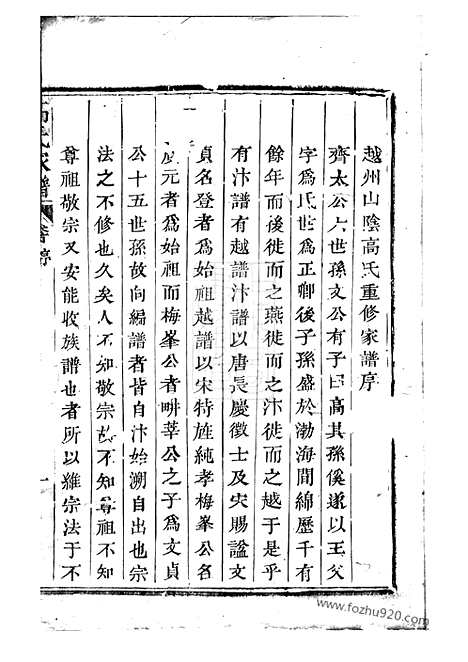 越州山陰高氏重修家譜序
齊太公六世孫文公有子曰高其孫傒遂以王父
字爲氏世爲正卿後子孫盛於渤海間綿歷千有
餘年而後徙而之燕徙而之汴徙而之越于是乎
有汴譜有越譜汴譜以唐長慶徵士及宋賜諡文
貞名登者爲始祖越譜以宋特旌純孝梅峯公名
元者爲始祖而梅峯公者畊莘公之子爲文貞
公十五世孫故向編譜者皆自汴始溯自出也宗
法之不修也久矣人不知敬宗故不知尊祖不知
尊祖敬宗又安能收族譜也者所以維宗法于不
氏家譜 序 一
www.fozhu920.com